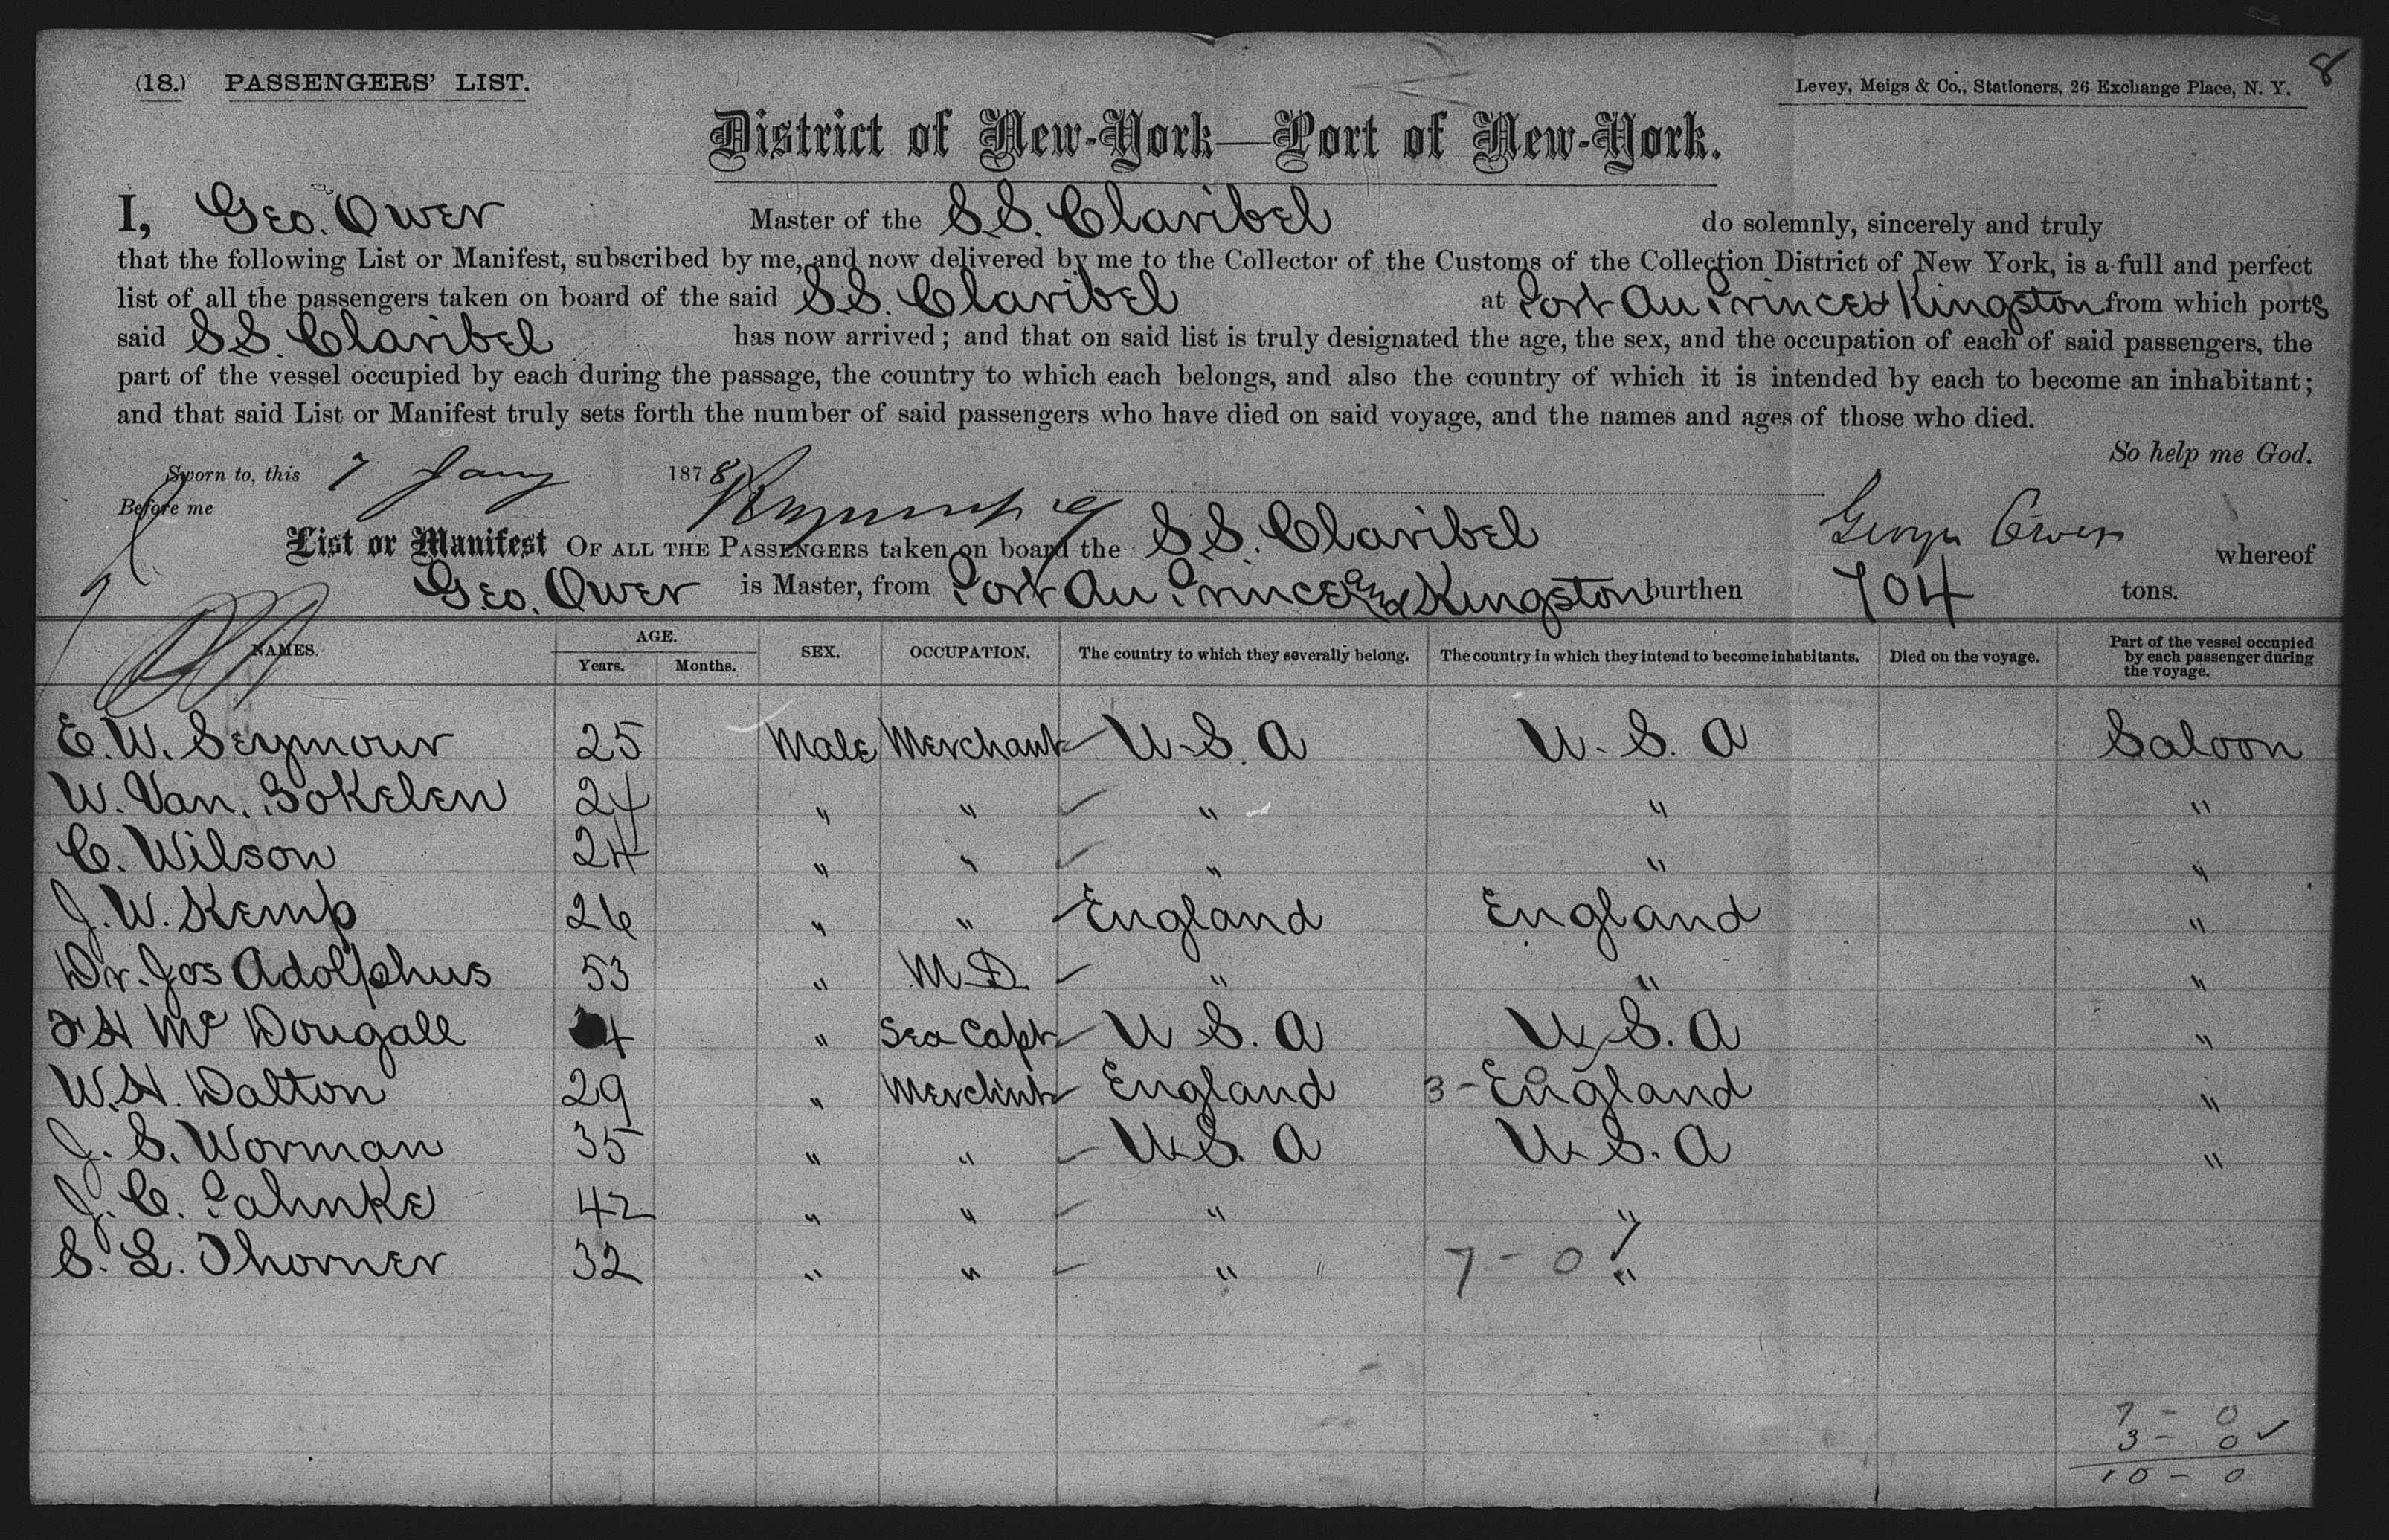 8
(18.) PASSENGERS' LIST. Levey, Meigs & Co., Stationers, 26 Exchange Place, N. Y.
District of New-York—Port of New-York.
I, Geo. Ower Master of the S.S. Claribel do solemnly, sincerely and truly
that the following List or Manifest, subscribed by me, and now delivered by me to the Collector of the Customs of the Collection District of New York, is a full and perfect
list of all the passengers taken on board of the said S.S. Claribel at Port Au Prince & Kingston from which ports
said S.S. Claribel has now arrived; and that on said list is truly designated the age, the sex, and the occupation of each of said passengers, the
part of the vessel occupied by each during the passage, the country to which each belongs, and also the country of which it is intended by each to become an inhabitant;
and that said List or Manifest truly sets forth the number of said passengers who have died on said voyage, and the names and ages of those who died.
So help me God.
Sworn to, this 7 Jany 1878
Before me
George Ower
List or Manifest OF ALL THE PASSENGERS taken on board the S.S. Claribel whereof
Geo. Ower is Master, from Port Au Prince and Kingston burthen 704 tons.
NAMES. AGE. Years. Months. SEX. OCCUPATION. The country to which they severally belong. The country in which they intend to become inhabitants. Died on the voyage. Part of the vessel occupied by each passenger during the voyage.
E. W. Seymour 25 Male Merchant U.S.A U.S.A Saloon
W. Van. Bokelen 24 " " " " "
C. Wilson 24 " " " " "
J. W. Kemp 26 " " England England "
Dr. Jos Adolphus 53 " M.D. " " "
F H Mc Dougall 4 " Sea Capt U S. A U.S. A "
W. H. Dalton 29 " Merchnt England 3 - England "
J. S. Worman 35 " " U.S. A U.S. A "
J. C. Pahnke 42 " " " "
S. L. Thorner 32 " " " 7 - 0 "
7 - 0
3 - 0 ✓
10 - 0